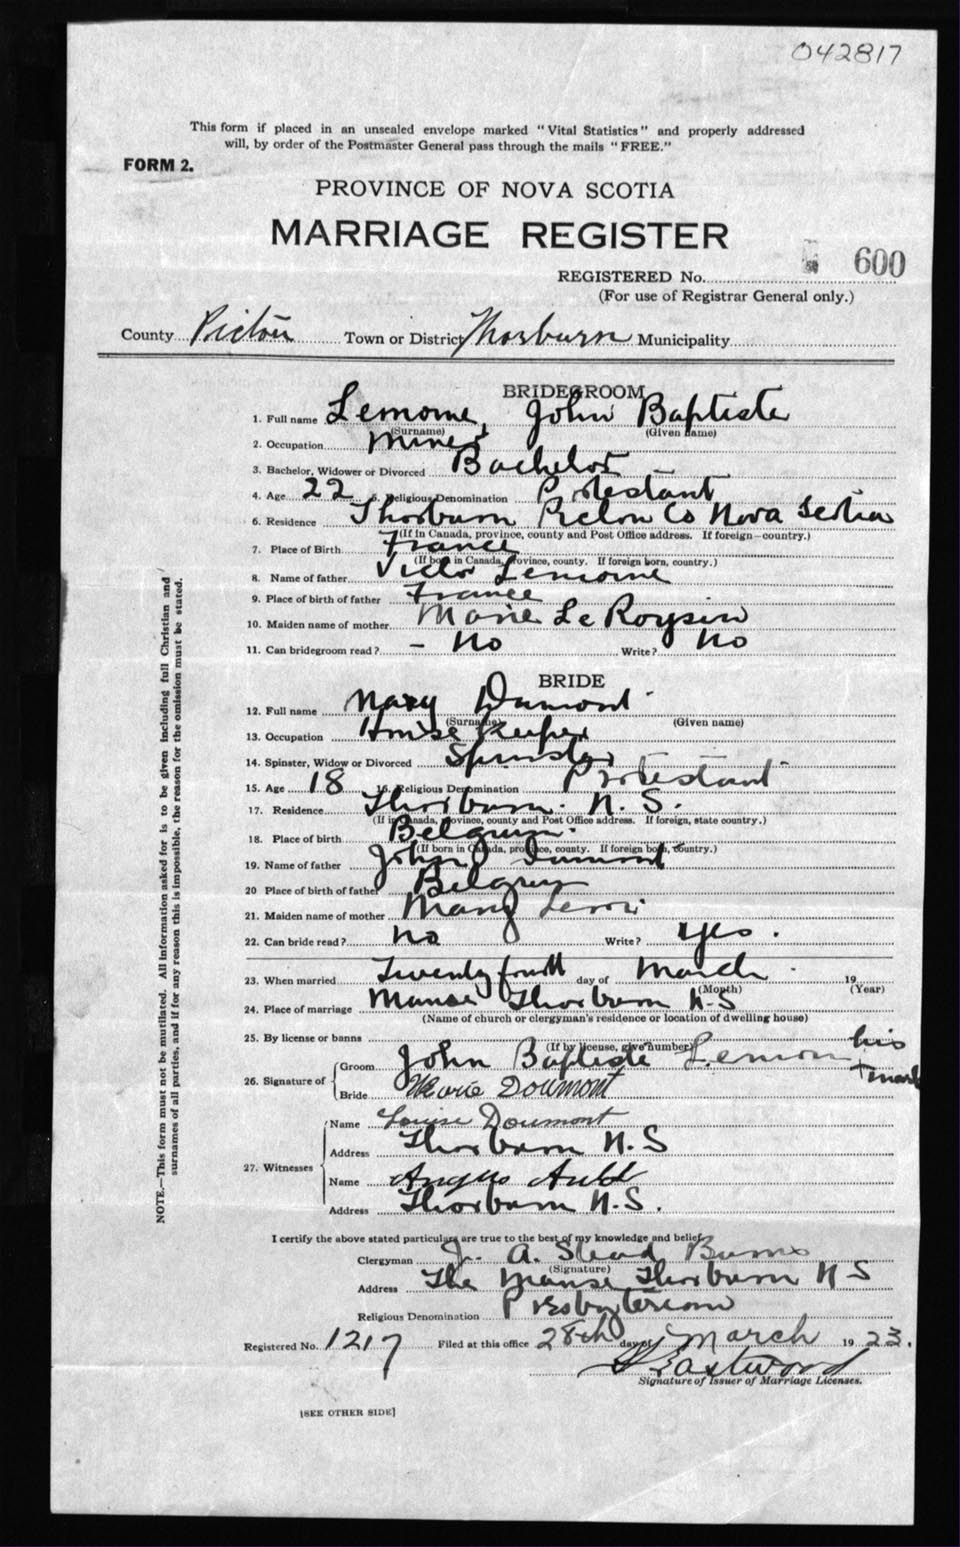 042817
This form if placed in an unsealed envelope marked "Vital Statistics" and properly addressed
will, by order of the Postmaster General pass through the mails "FREE."
FORM 2.
PROVINCE OF NOVA SCOTIA
MARRIAGE REGISTER
REGISTERED No. 600
(For use of Registrar General only.)
County Pictou Town or District Thorburn Municipality
BRIDEGROOM
1. Full name Lemoine, John Baptiste
(Surname) (Given name)
2. Occupation Miner
3. Bachelor, Widower or Divorced Bachelor
4. Age 22 5. Religious Denomination Protestant
6. Residence Thorburn Pictou Co Nova Scotia
(If in Canada, province, county and Post Office address. If foreign—country.)
7. Place of Birth France
(If born in Canada, province, county. If foreign born, country.)
8. Name of father Victor Lemoine
9. Place of birth of father France
10. Maiden name of mother Marie Le
11. Can bridegroom read? – No Write? No
BRIDE
12. Full name Mary Dumont
(Surname) (Given name)
13. Occupation House Keeper
14. Spinster, Widow or Divorced Spinster
15. Age 18 16. Religious Denomination Protestant
17. Residence Thorburn. N. S.
(If in Canada, province, county and Post Office address. If foreign, state country.)
18. Place of birth Belgium.
(If born in Canada, province, county. If foreign born, country.)
19. Name of father John Dumont
20 Place of birth of father Belgium
21. Maiden name of mother Mary
22. Can bride read? No Write? Yes.
23. When married Twenty fourth day of March 19
(Month) (Year)
24. Place of marriage Manse Thorburn N-S
(Name of church or clergyman's residence or location of dwelling house)
25. By license or banns
(If by license, give number)
26. Signature of Groom John Baptiste Lemoin his + mark
Bride Marie Doumont
27. Witnesses Name Louise Doumont
Address Thorburn N. S
Name Angus Auld
Address Thorburn N. S.
I certify the above stated particulars are true to the best of my knowledge and belief.
Clergyman J. A. Stead Burns
(Signature)
Address The Manse Thorburn N S
Religious Denomination Presbyterian
Registered No. 1217 Filed at this office 28th day of March 1923.
Eastwood
Signature of Issuer of Marriage Licenses.
[SEE OTHER SIDE]
NOTE.—This form must not be mutilated. All information asked for is to be given including full Christian and
surnames of all parties, and if for any reason this is impossible, the reason for the omission must be stated.